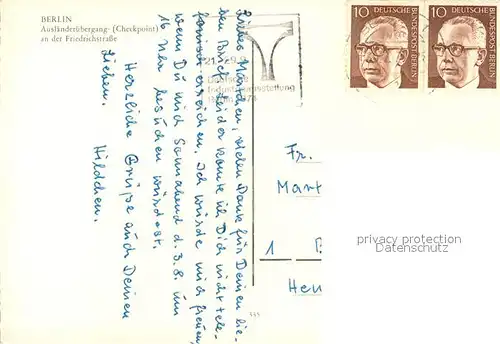 BERLIN
Ausländerübergang- (Checkpoint)
an der Friedrichstraße
10 DEUTSCHE
BUNDESPOST BERLIN
10 DEUTSCHE
BUNDESPOST BERLIN
Deutsche
Industrieausstellung
Liebes Martchen, vielen Dank für Deinen lie-
ben Brief. Leider konnte ich Dich nicht tele-
fonisch erreichen. Ich würde mich freuen,
wenn Du mich Sonnabend d. 3.8. um
16 Uhr besuchen würdest.
Herzliche Grüße auch Deinen
Lieben.
Hildchen.
Fr.
Mart
1 B
339
privacy protection
Datenschutz